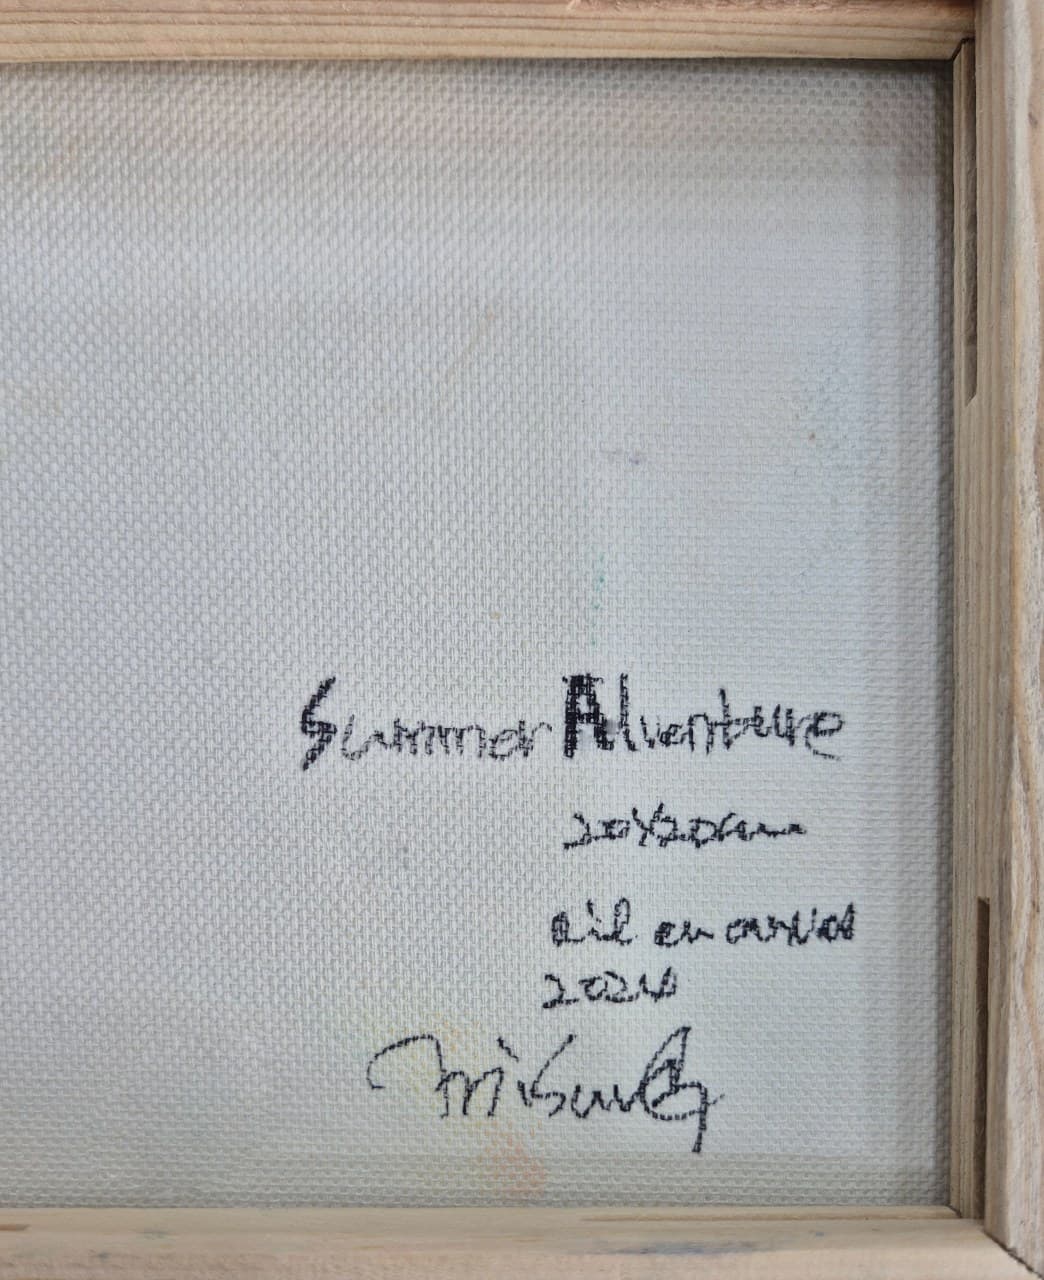 Summer Adventure
20x20cm
oil on canvas
2024